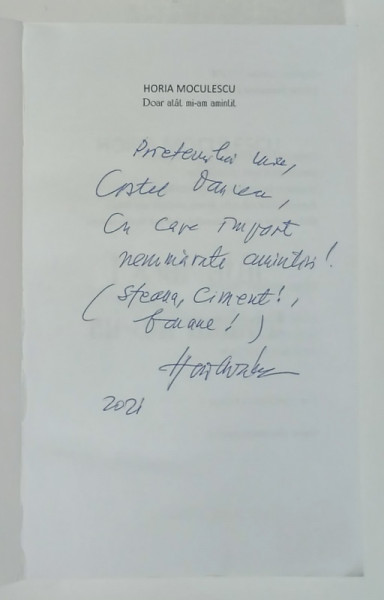 HORIA MOCULESCU
Doar atât mi-am amintit
Prietenului meu,
Costel
Cu care împart
nenumărate amintiri!
(Steaua, Ciment!,
)
2021